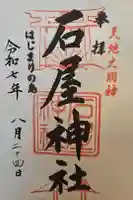 奉拝
天地大明神
石屋神社
はじまりの島
令和七年
八月二十四日